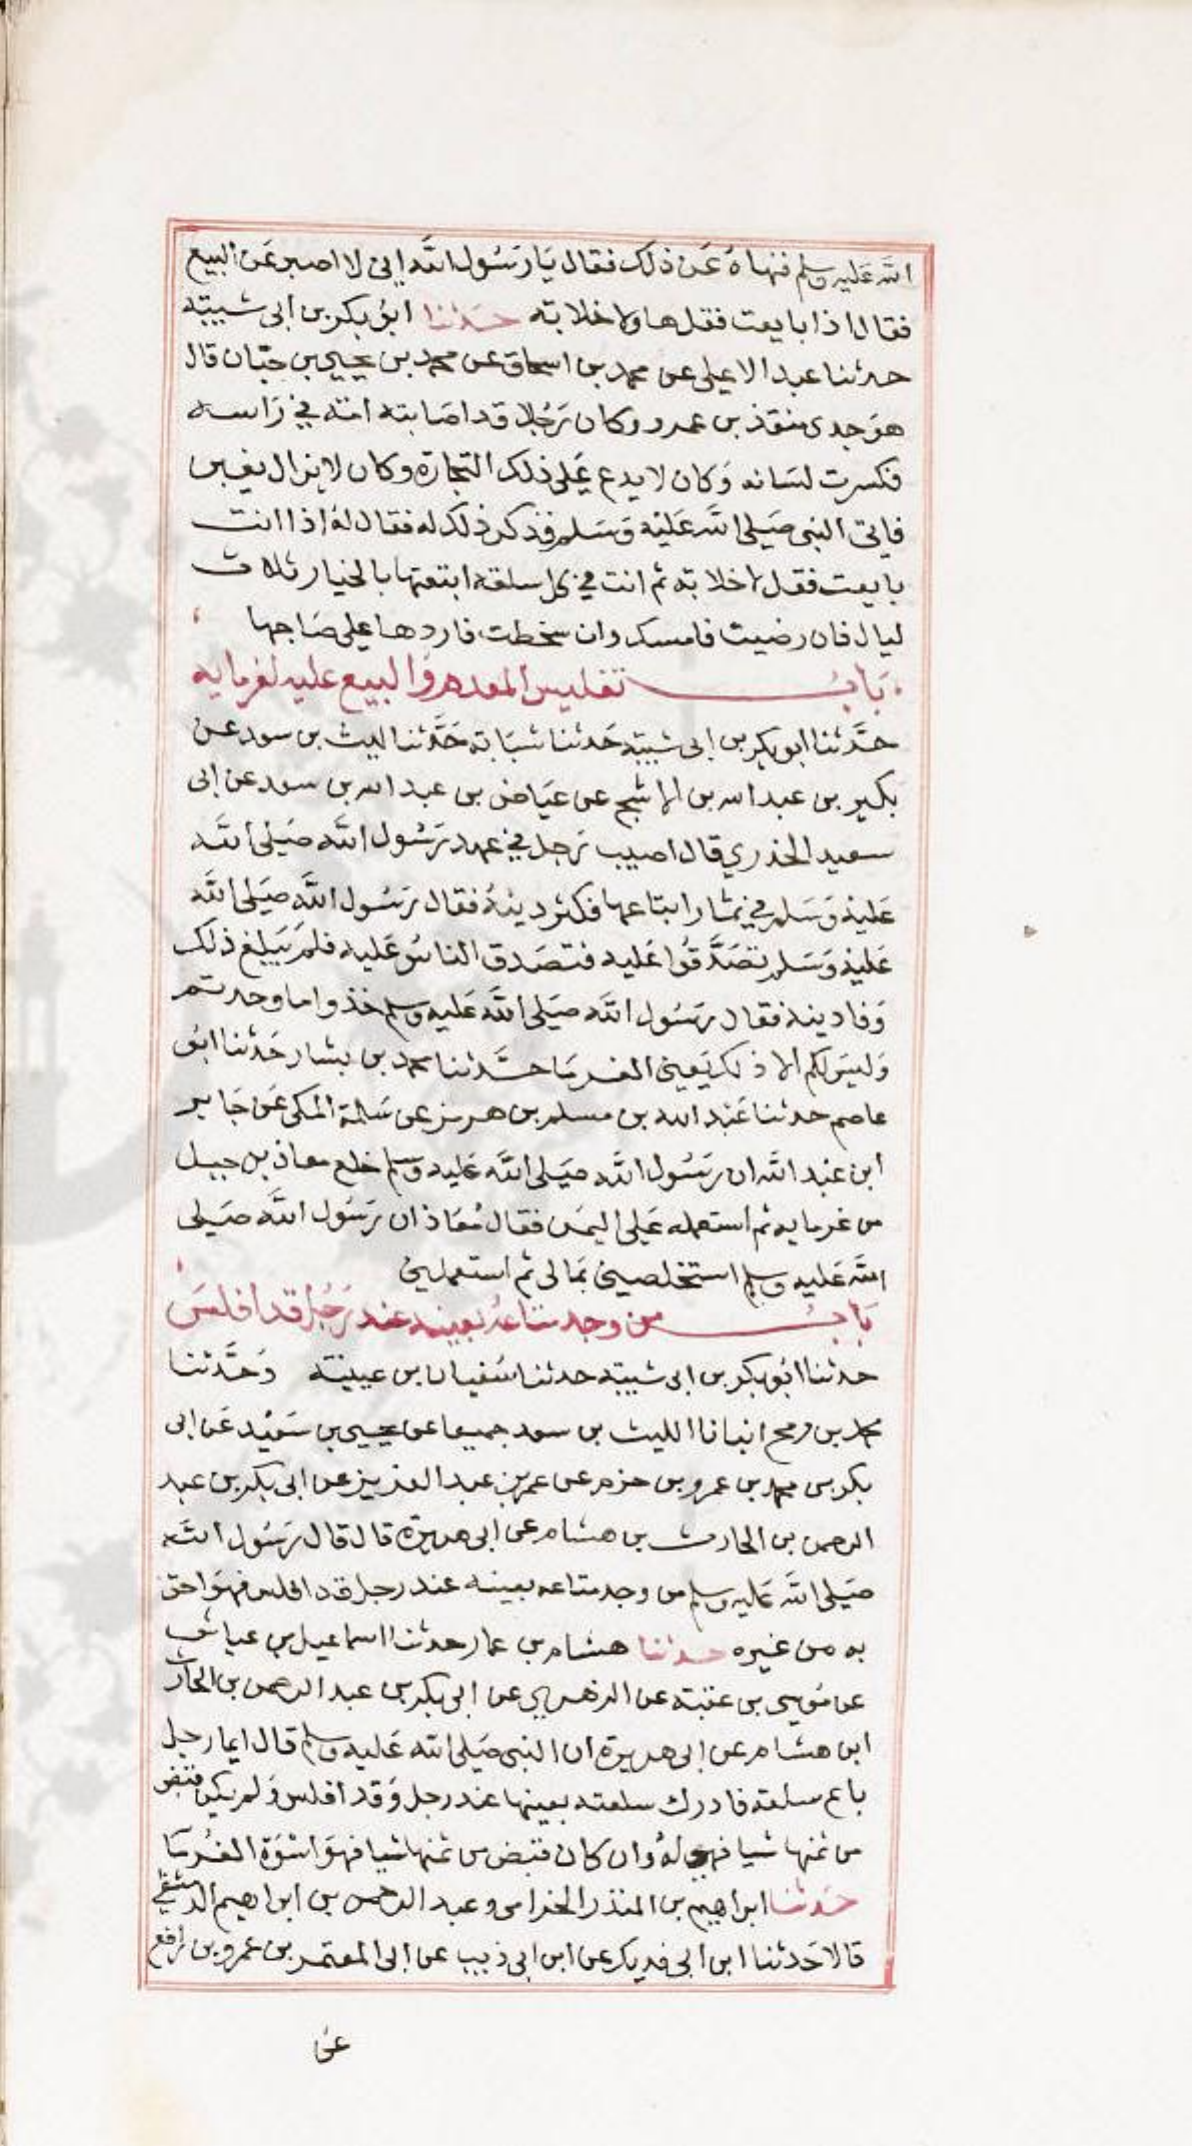 الله عليه وسلم فنهاه عن ذلك فقال يا رسول الله اني لا اصبر عن البيع
فقال اذا بايعت فقل ها ولا خلابة حدثنا ابو بكر بن ابي شيبة
حدثنا عبد الاعلى عن محمد بن اسحاق عن محمد بن يحيى بن حبان قال
هو جدي منقذ بن عمرو وكان رجلا قد اصابته امة في راسه
فكسرت لسانه وكان لا يدع على ذلك التجارة وكان لا يزال يغبن
فاتى النبي صلى الله عليه وسلم فذكر ذلك له فقال له اذا انت
بايعت فقل لا خلابة ثم انت في كل سلعة ابتعتها بالخيار ثلاث
ليال فان رضيت فامسك وان سخطت فارددها على صاحبها
باب تفليس المعدم والبيع عليه لغرمايه
حدثنا ابو بكر بن ابي شيبة حدثنا شبابة حدثنا الليث بن سعد عن
بكير بن عبد الله بن الاشج عن عياض بن عبد الله بن سعد عن ابي
سعيد الخدري قال اصيب رجل في عهد رسول الله صلى الله
عليه وسلم في ثمار ابتاعها فكثر دينه فقال رسول الله صلى الله
عليه وسلم تصدقوا عليه فتصدق الناس عليه فلم يبلغ ذلك
وفا دينه فقال رسول الله صلى الله عليه وسلم خذوا ما وجدتم
وليس لكم الا ذلك يعني الغرما حدثنا محمد بن بشار حدثنا ابو
عاصم حدثنا عبد الله بن مسلم بن هرمز عن سلمة المكي عن جابر
ابن عبد الله ان رسول الله صلى الله عليه وسلم خلع معاذ بن جبل
من غرمايه ثم استعمله على اليمن فقال معاذ ان رسول الله صلى
الله عليه وسلم استخلصني بمالي ثم استعملني
باب من وجد متاعه بعينه عند رجل قد افلس
حدثنا ابو بكر بن ابي شيبة حدثنا سفيان بن عيينة وحدثنا
محمد بن رمح انبانا الليث بن سعد جميعا عن يحيى بن سعيد عن ابي
بكر بن محمد بن عمرو بن حزم عن عمر بن عبد العزيز عن ابي بكر بن عبد
الرحمن بن الحارث بن هشام عن ابي هريرة قال قال رسول الله
صلى الله عليه وسلم من وجد متاعه بعينه عند رجل قد افلس فهو احق
به من غيره حدثنا هشام بن عمار حدثنا اسماعيل بن عياش
عن موسى بن عقبة عن الزهري عن ابي بكر بن عبد الرحمن بن الحارث
ابن هشام عن ابي هريرة ان النبي صلى الله عليه وسلم قال ايما رجل
باع سلعة فادرك سلعته بعينها عند رجل وقد افلس ولم يكن قبض
من ثمنها شيا فهي له وان كان قبض من ثمنها شيا فهو اسوة الغرما
حدثنا ابراهيم بن المنذر الحزامي وعبد الرحمن بن ابراهيم الدمشقي
قالا حدثنا ابن ابي فديك عن ابن ابي ذييب عن ابي المعتمر بن عمرو بن رافع
عن